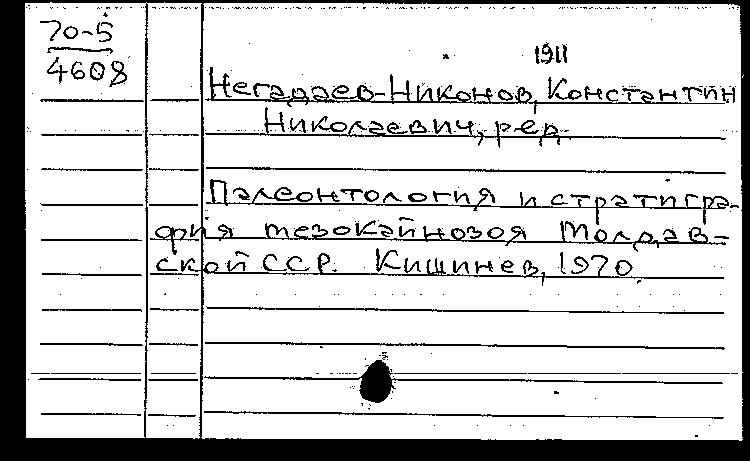 70-5
4608
1911
Негадаев-Никонов, Константин
Николаевич, ред.
Палеонтология и стратигра-
фия мезокайнозоя Молдав-
ской ССР. Кишинев, 1970.